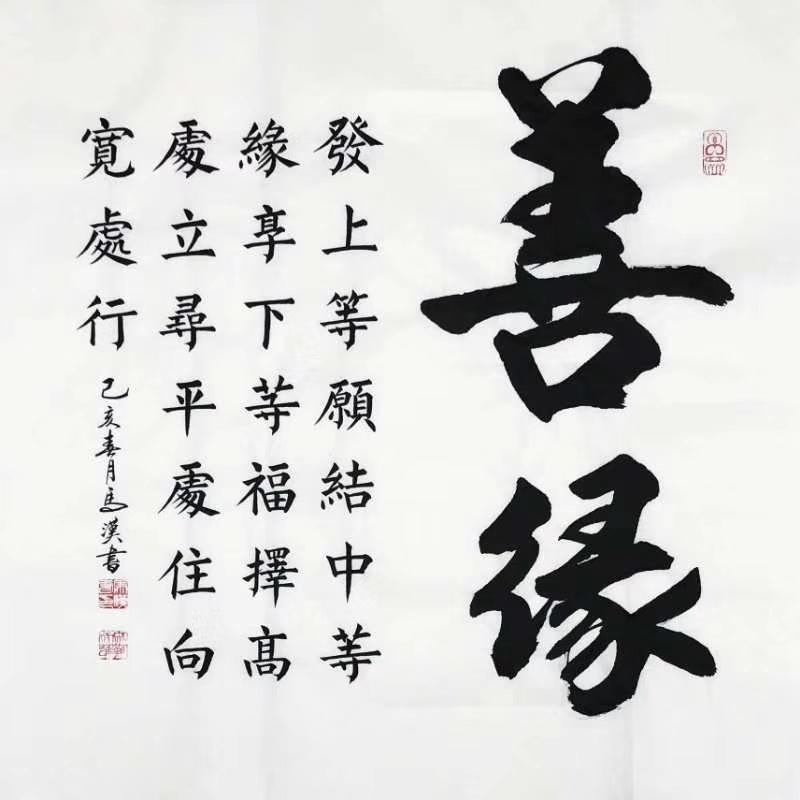 善缘
發上等願結中等
緣享下等福擇高
處立尋平處住向
寬處行
己亥春月马漢書